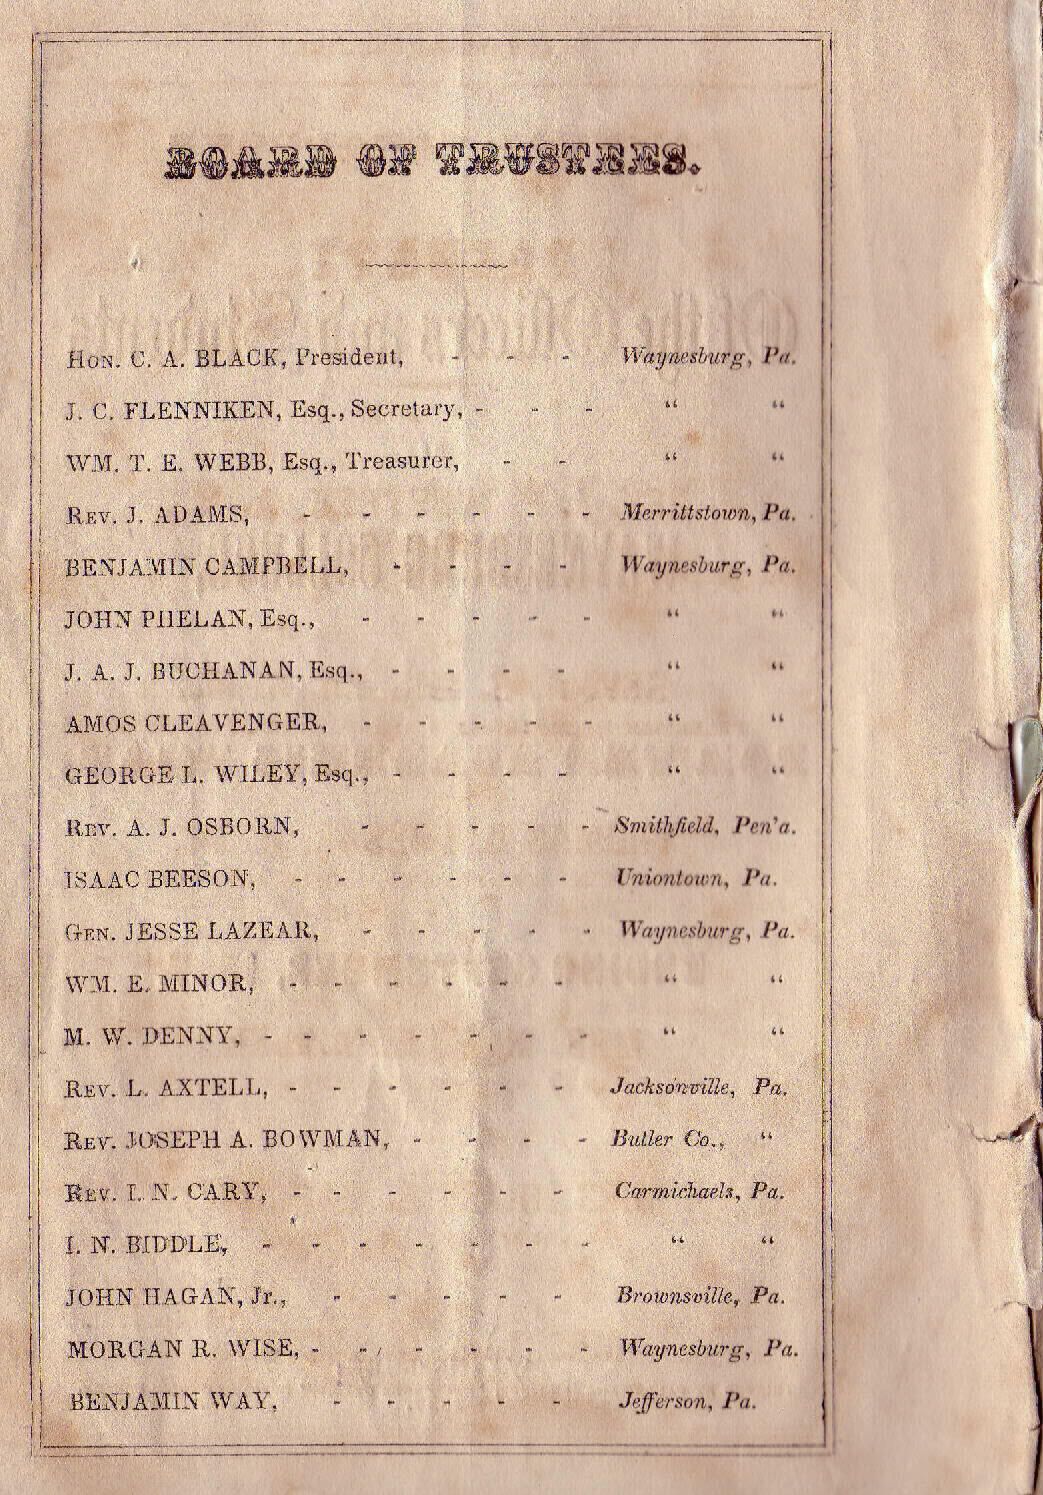 BOARD OF TRUSTEES.
HON. C. A. BLACK, President, - - - Waynesburg, Pa.
J. C. FLENNIKEN, Esq., Secretary, - - - “ “
WM. T. E. WEBB, Esq., Treasurer, - - “ “
REV. J. ADAMS, - - - - - - Merrittstown, Pa.
BENJAMIN CAMPBELL, - - - - Waynesburg, Pa.
JOHN PHELAN, Esq., - - - - - “ “
J. A. J. BUCHANAN, Esq., - - - - “ “
AMOS CLEAVENGER, - - - - - “ “
GEORGE L. WILEY, Esq., - - - - “ “
REV. A. J. OSBORN, - - - - - Smithfield, Pen'a.
ISAAC BEESON, - - - - - - Uniontown, Pa.
GEN. JESSE LAZEAR, - - - - - Waynesburg, Pa.
WM. E. MINOR, - - - - - - “ “
M. W. DENNY, - - - - - - - “ “
REV. L. AXTELL, - - - - - - Jacksonville, Pa.
REV. JOSEPH A. BOWMAN, - - - - Butler Co., “
REV. I. N. CARY, - - - - - - Carmichaels, Pa.
I. N. BIDDLE, - - - - - - - “ “
JOHN HAGAN, Jr., - - - - - Brownsville, Pa.
MORGAN R. WISE, - - - - - - Waynesburg, Pa.
BENJAMIN WAY, - - - - - Jefferson, Pa.